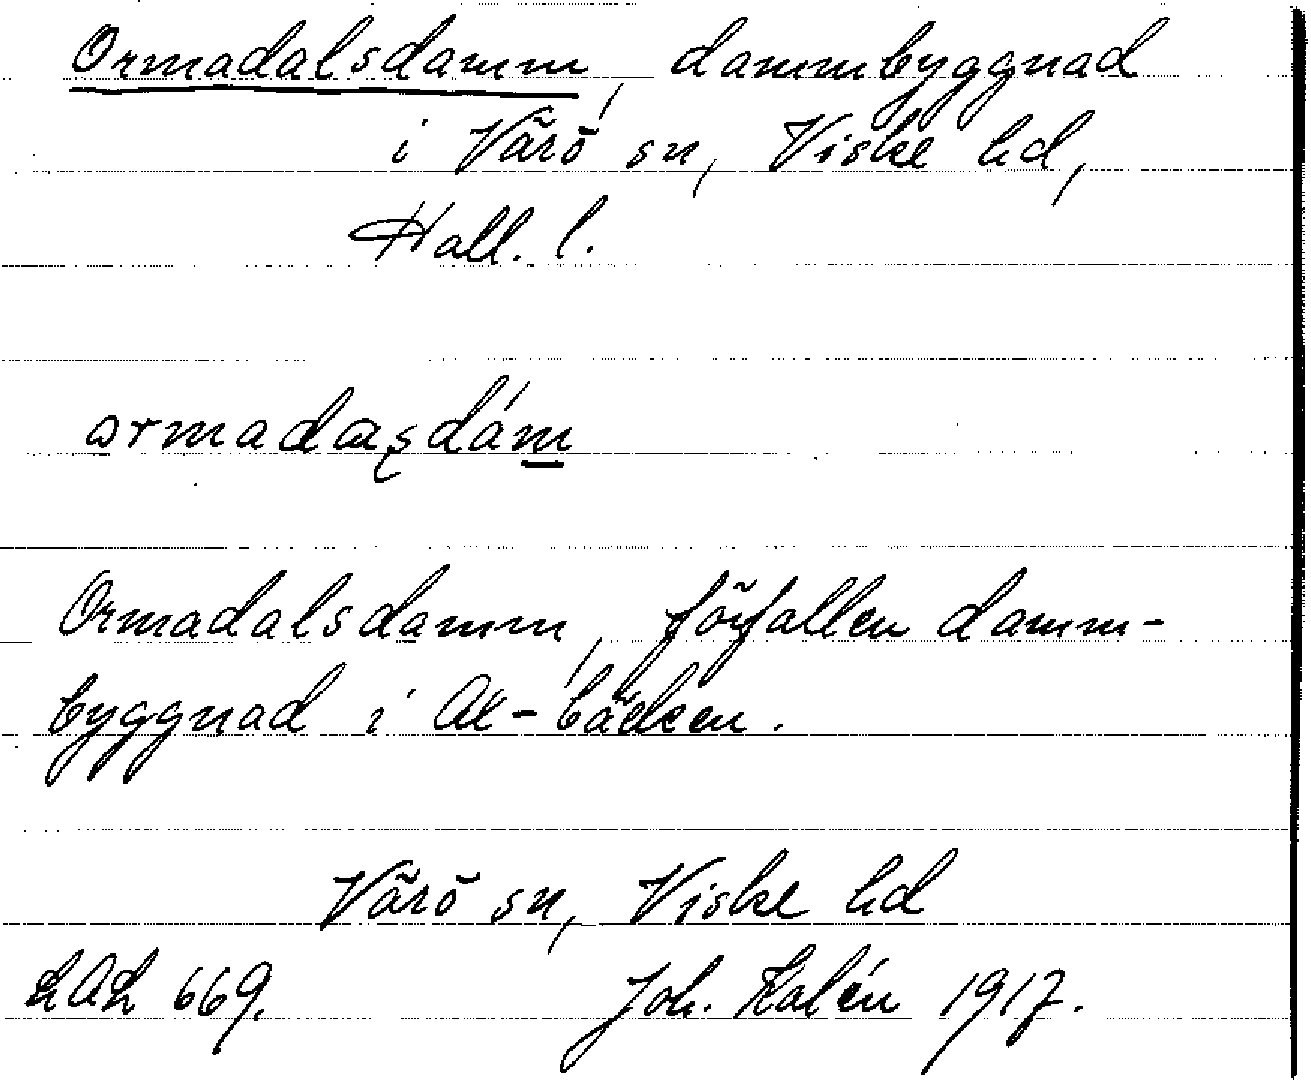 Ormadalsdamm, dammbyggnad
i Värö sn, Viske hd,
Hall. l.
Ormadalsdamm, förfallen damm-
byggnad i Ax-bäcken.
Värö sn, Viske hd
LAL 669. Joh. Kalén 1917.